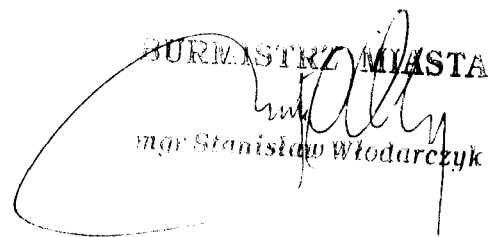 BURMISTRZ MIASTA
mgr Stanisław Włodarczyk